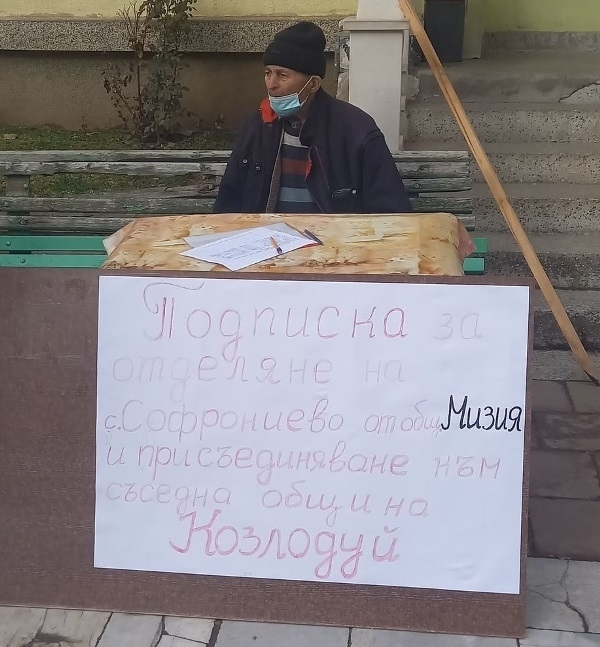 Подписка за
отделяне на
с.Софрониево от общ. Мизия
и присъединяване към
съседна община
Козлодуй